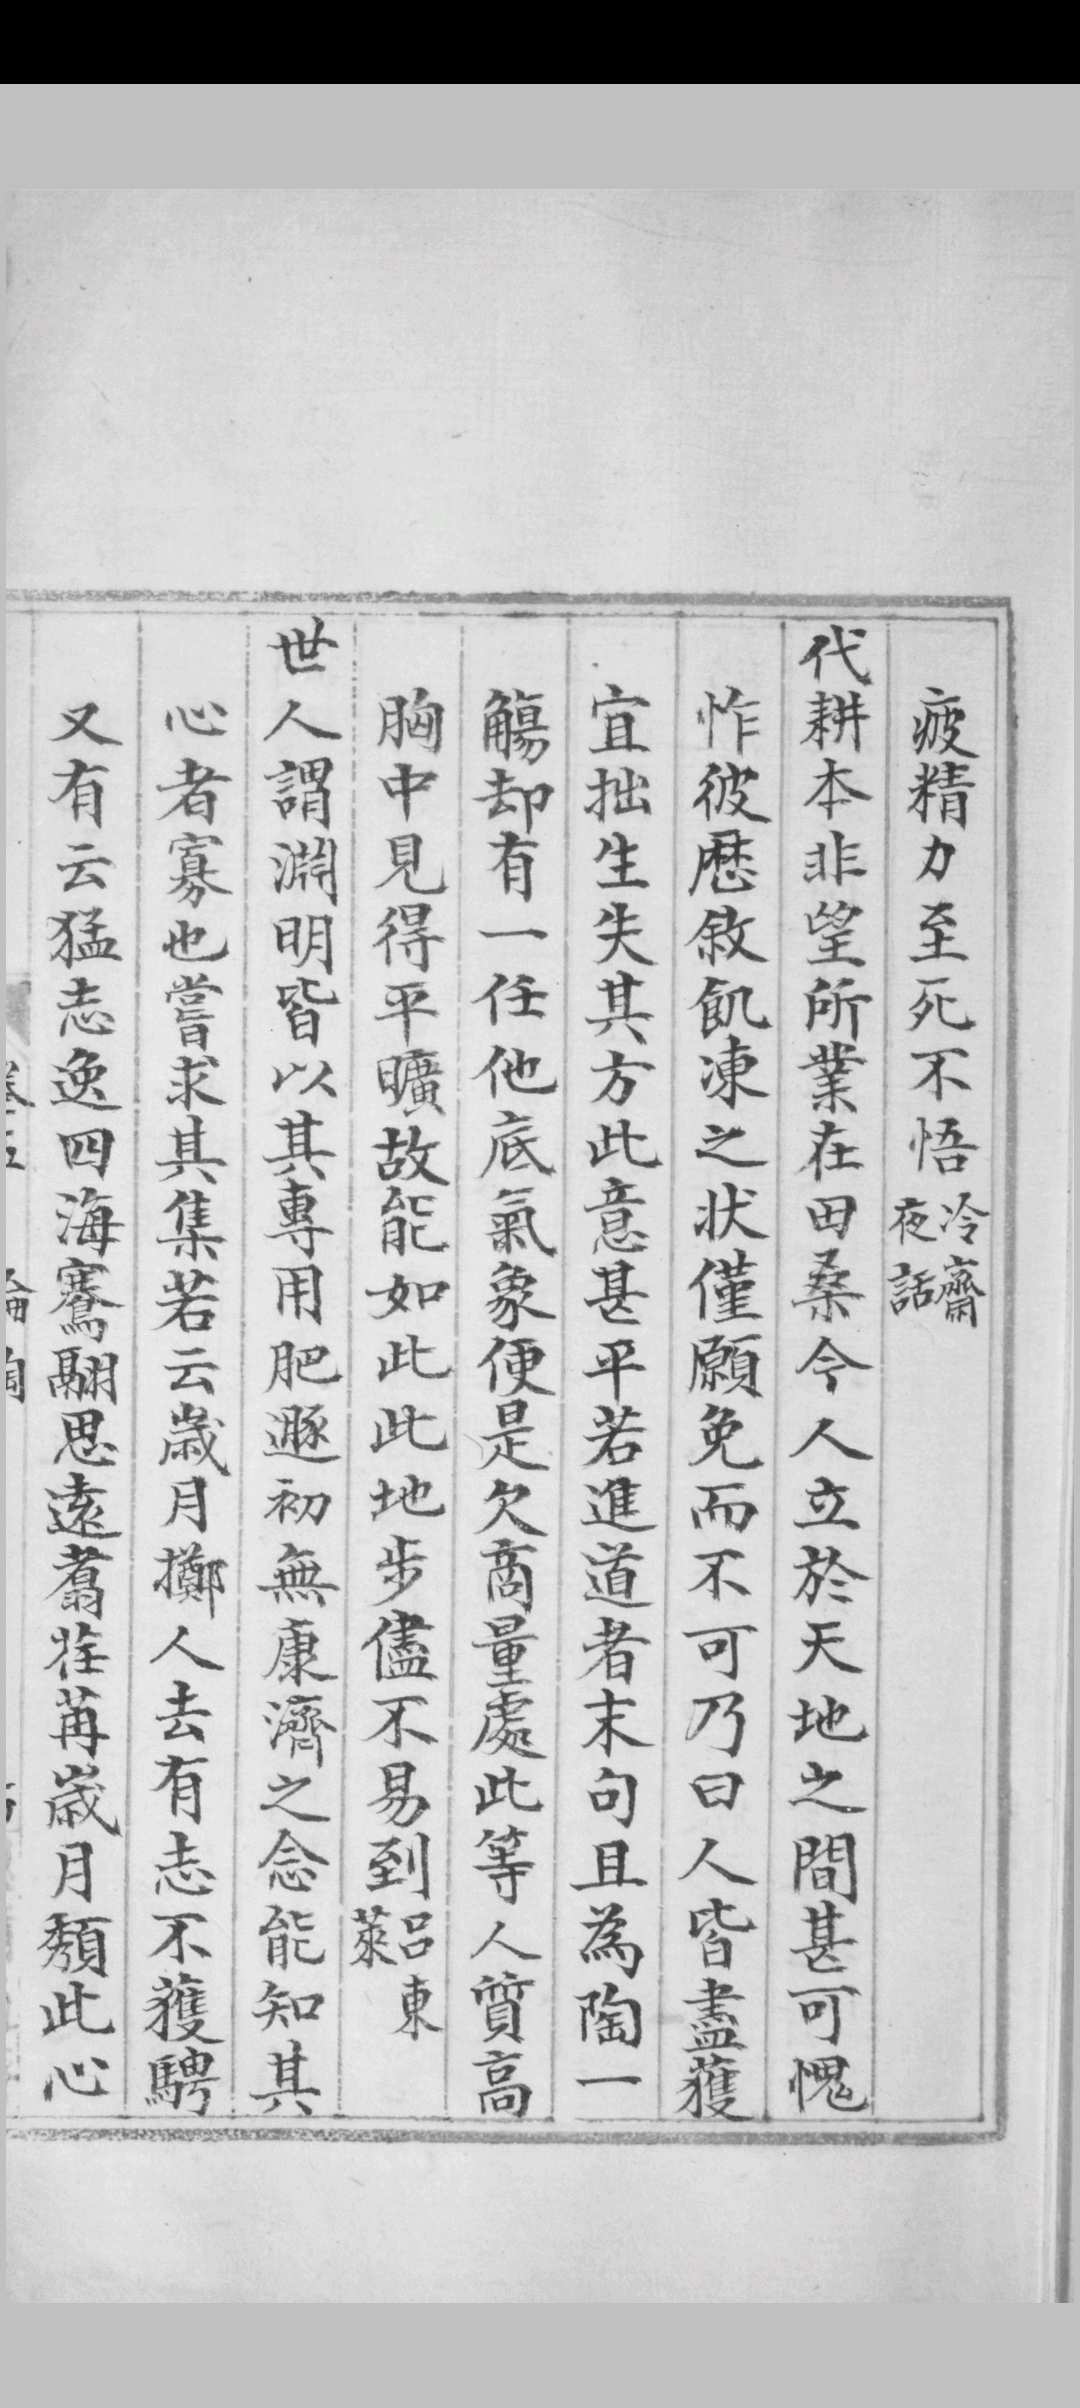 疲精力至死不悟冷齋夜話
代耕本非望所業在田桑今人立於天地之間甚可愧
怍彼歷敘飢凍之狀僅願免而不可乃曰人皆盡獲
宜拙生失其方此意甚平若進道者末句且為陶一
觴却有一任他底氣象便是欠商量處此等人質高
胸中見得平曠故能如此此地步儘不易到呂東萊
世人謂淵明皆以其專用肥遯初無康濟之念能知其
心者寡也嘗求其集若云歲月擲人去有志不獲騁
又有云猛志逸四海騫翮思遠翥荏苒歲月頹此心